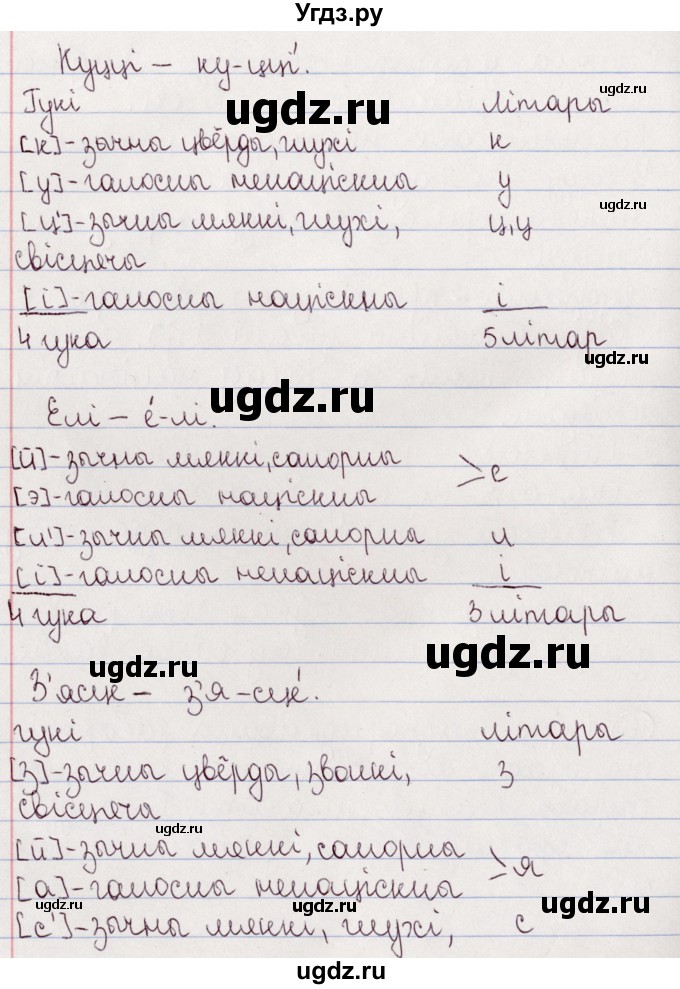 Угдз.ру
Куцці – ку-цці́.
ugdz.ru
Гукі літары
ugdz.ru
[к]-зычны цвёрды, глухі к
[у]-галосны ненаціскны у
ugdz.ru
[ц']-зычны мяккі, глухі, ц,ц
свісцячы
[і]-галосны націскны і
4 гука 5 літар
ugdz.ru
ugdz.ru
Елі – е́-лі.
[й]-зычны мяккі, санорны
[э]-галосны націскны >е
[л']-зычны мяккі, санорны л
[і]-галосны ненаціскны і
4 гука 3 літары
ugdz.ru
ugdz.ru
З'есці
гукі літары
[з]-зычны цвёрды, звонкі, з
свісцячы
ugdz.ru
[й]-зычны мяккі, санорны
[а]-галосны ненаціскны >я
ugdz.ru ugdz.ru ugdz.ru
[с']-зычны мяккі, глухі, с
ugdz.ru